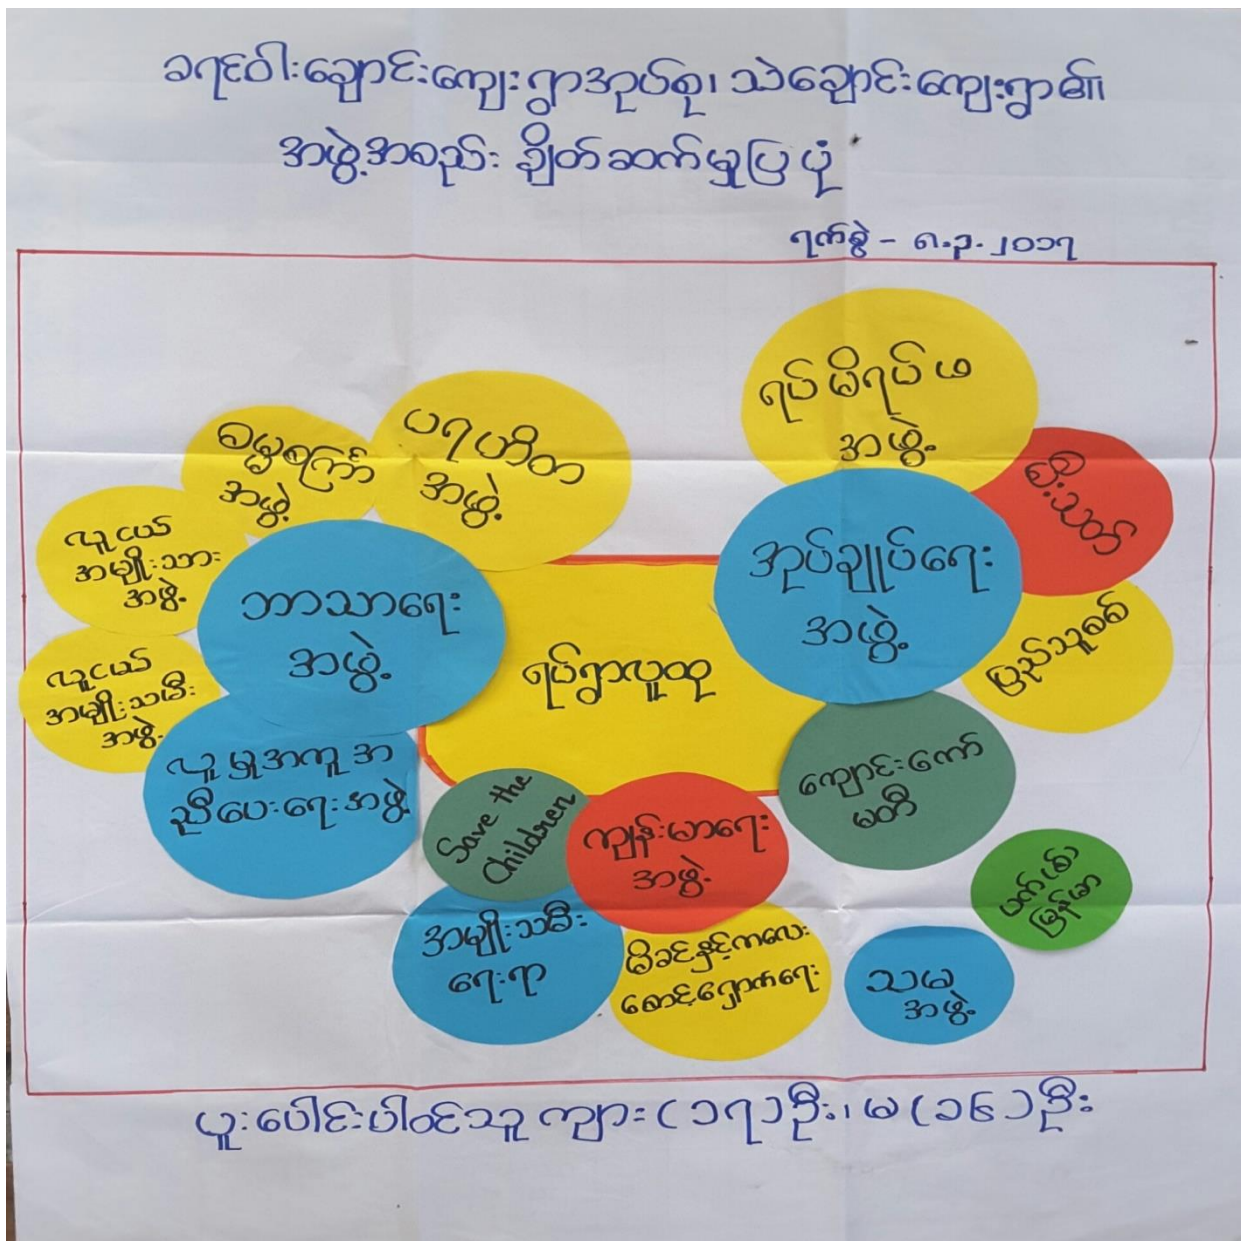 ခရင်ဝါးချောင်းကျေးရွာအုပ်စု၊ သဲချောင်းကျေးရွာ၏
အဖွဲ့အစည်း ချိတ်ဆက်မှုပြပုံ
ရက်စွဲ - ၈.၃.၂၀၁၇
ရပ်မိရပ်ဖ
အဖွဲ့
ပရဟိတ
အဖွဲ့
ဓမ္မစကြာ
အဖွဲ့
မီးသတ်
လူငယ်
အမျိုးသား
အဖွဲ့
အုပ်ချုပ်ရေး
အဖွဲ့
ဘာသာရေး
အဖွဲ့
ပြည်သူစစ်
ရပ်ရွာလူထု
လူငယ်
အမျိုးသမီး
အဖွဲ့
လူမှုအကူအ
ညီပေးရေးအဖွဲ့
ကျောင်းကော်
မတီ
Save the
Children
ကျန်းမာရေး
အဖွဲ့
ပက်ဖော်
မြန်မာ
အမျိုးသမီး
ရေးရာ
မိခင်နှင့်ကလေး
စောင့်ရှောက်ရေး
သမ
အဖွဲ့
ပူးပေါင်းပါဝင်သူ ကျား (၁၇) ဦး၊ မ (၁၆) ဦး